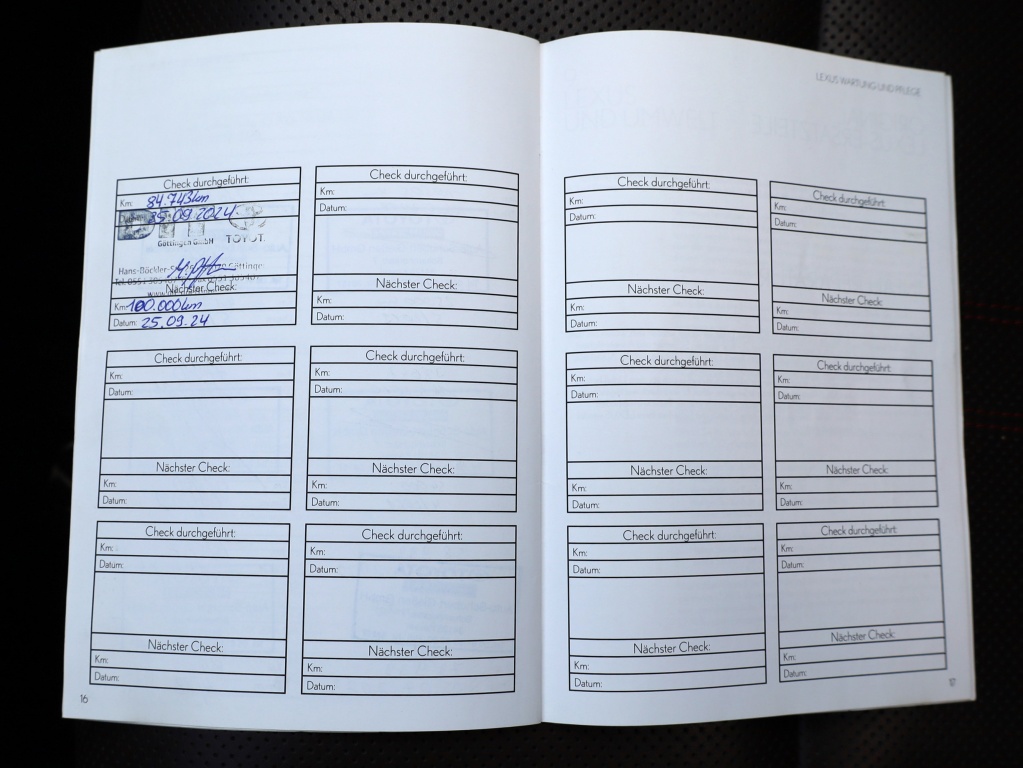 LEXUS WARTUNG UND PFLEGE
Check durchgeführt:
Km: 84.743km
Datum: 25.09.2024
Göttingen GmbH TOYOT
Hans-Böckler-
Nächster Check:
Km: 100.000km
Datum: 25.09.24
Check durchgeführt:
Km:
Datum:
Nächster Check:
Km:
Datum:
Check durchgeführt:
Km:
Datum:
Nächster Check:
Km:
Datum:
Check durchgeführt:
Km:
Datum:
Nächster Check:
Km:
Datum:
Check durchgeführt:
Km:
Datum:
Nächster Check:
Km:
Datum:
Check durchgeführt:
Km:
Datum:
Nächster Check:
Km:
Datum:
16
Check durchgeführt:
Km:
Datum:
Nächster Check:
Km:
Datum:
Check durchgeführt:
Km:
Datum:
Nächster Check:
Km:
Datum:
Check durchgeführt:
Km:
Datum:
Nächster Check:
Km:
Datum:
Check durchgeführt:
Km:
Datum:
Nächster Check:
Km:
Datum:
Check durchgeführt:
Km:
Datum:
Nächster Check:
Km:
Datum:
Check durchgeführt:
Km:
Datum:
Nächster Check:
Km:
Datum:
17